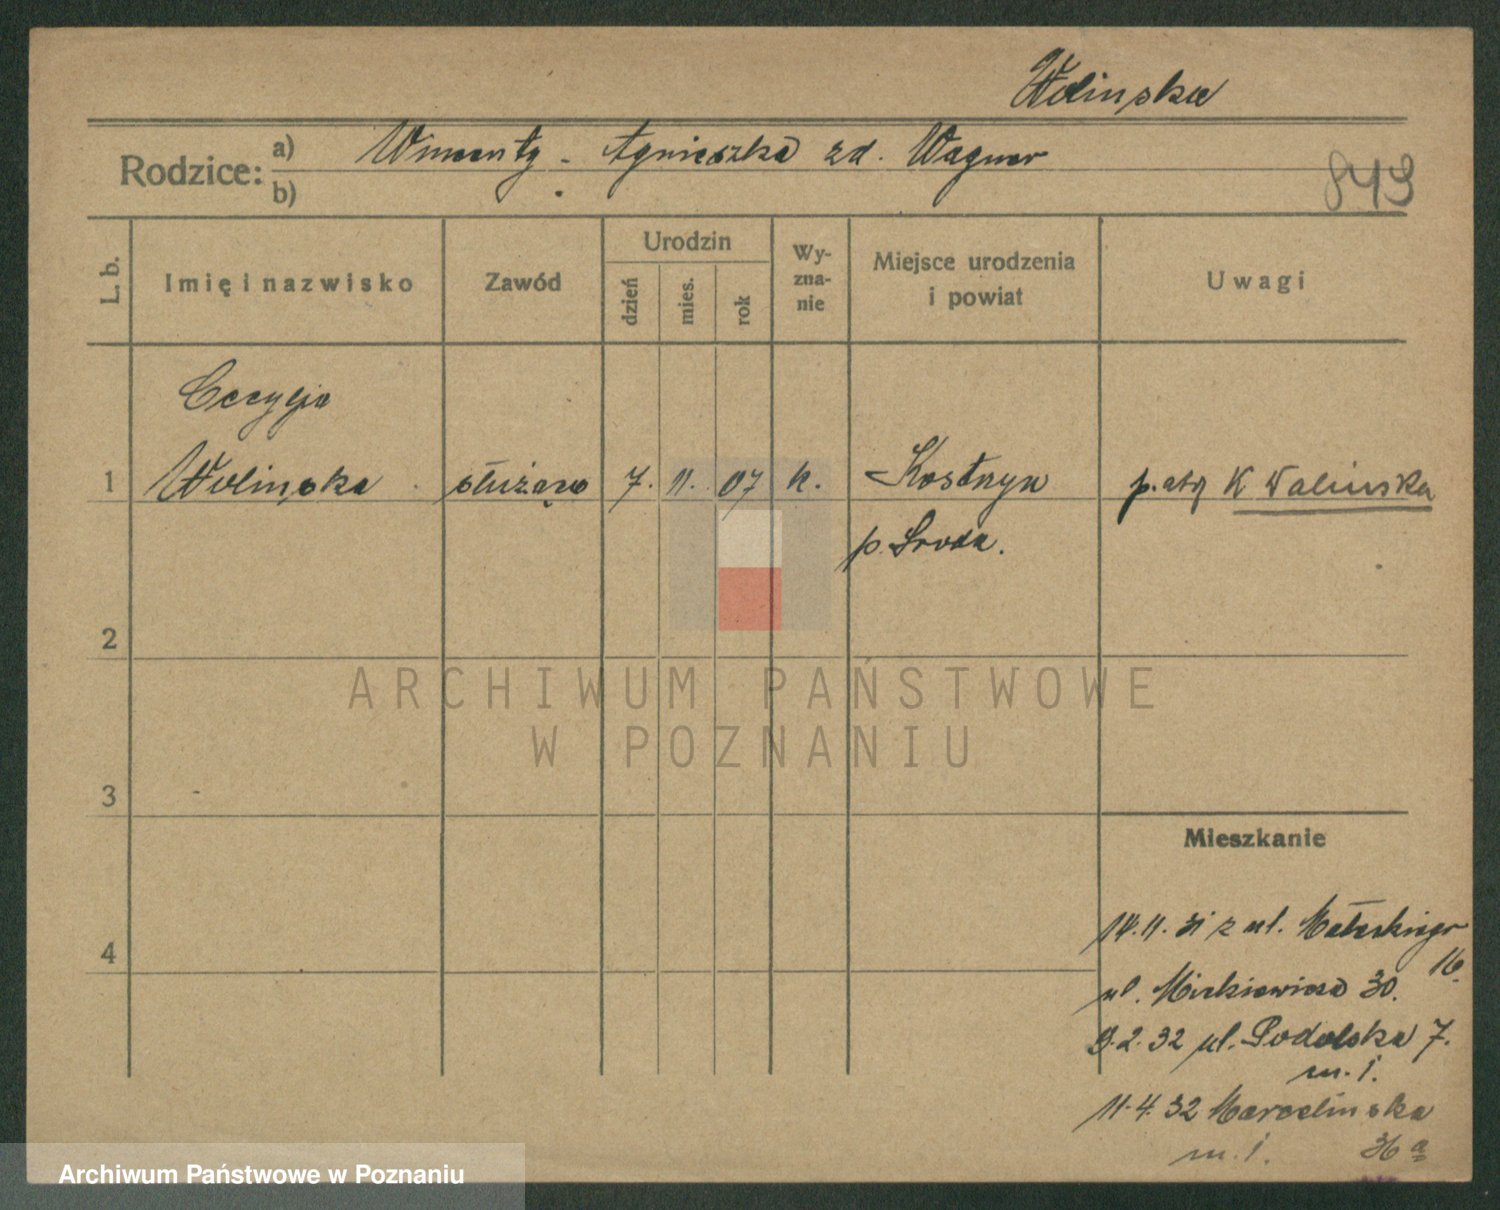 Wolinska
Rodzice:
a) Wincenty - Agnieszka zd. Wagner
b)
843
L. b.
Imię i nazwisko
Zawód
Urodzin
dzień
mies.
rok
Wy-
zna-
nie
Miejsce urodzenia
i powiat
Uwagi
Cecylja
1 Wolinska służąca 7. 11. 07 k. Kostrzyn p. K Walinska
p. Sroda.
2
3
4
Mieszkanie
14.11.31 z ul. Matejkiego
16.
ul. Mickiewicza 30.
9.2.32 ul. Podolska 7.
m. 1.
11.4.32 Marcelinska
m. 1. 36 a
ARCHIWUM PAŃSTWOWE
W POZNANIU
Archiwum Państwowe w Poznaniu